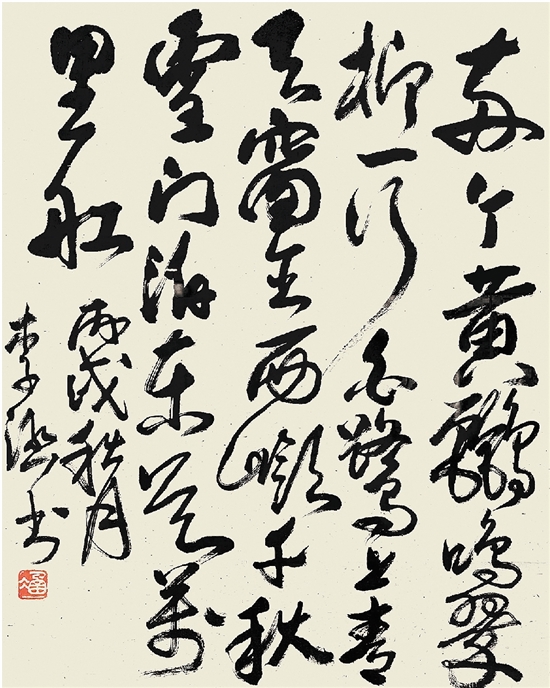 两个黄鸝鳴翠
柳一行白鷺上青
天窗含西嶺千秋
雪门泊东吴萬
里船
丙戌秋月
李书